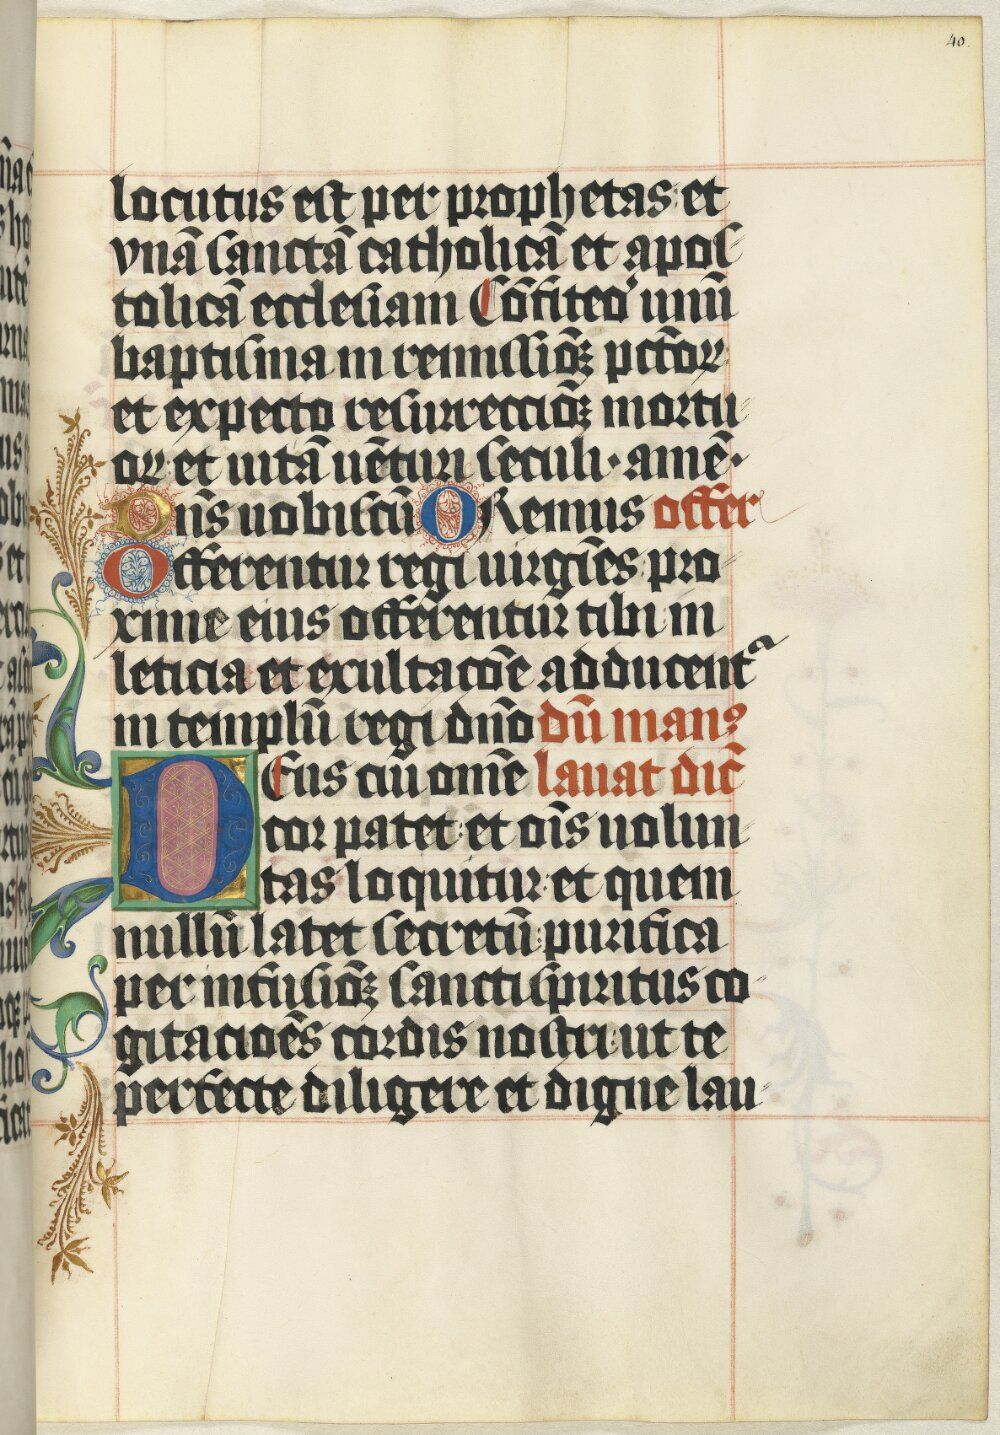 40.
locutus est per prophetas et
vnā sanctā catholicā et apos
tolicā ecclesiam Cōfiteoʳ unū
baptisma in remissiōꝫ pctōꝝ
et expecto resurrecciōꝫ mortu
oꝝ et uitā uēturi seculi · amē ·
Dn̄s uobiscū ORemus offer
Offerentur regi uirgīes pro
xime eius offerentur tibi in
leticia et exultacōe adducentᵃ
in templū regi dn̄o dū manꝰ
DEus cui om̄e lauat dic̄
cor patet et oīs uolun
tas loquitur et quem
nullū latet secretū purifica
per infusiōꝫ sancti spiritus co
gitacioēs cordis nostri ut te
perfecte diligere et digne lau